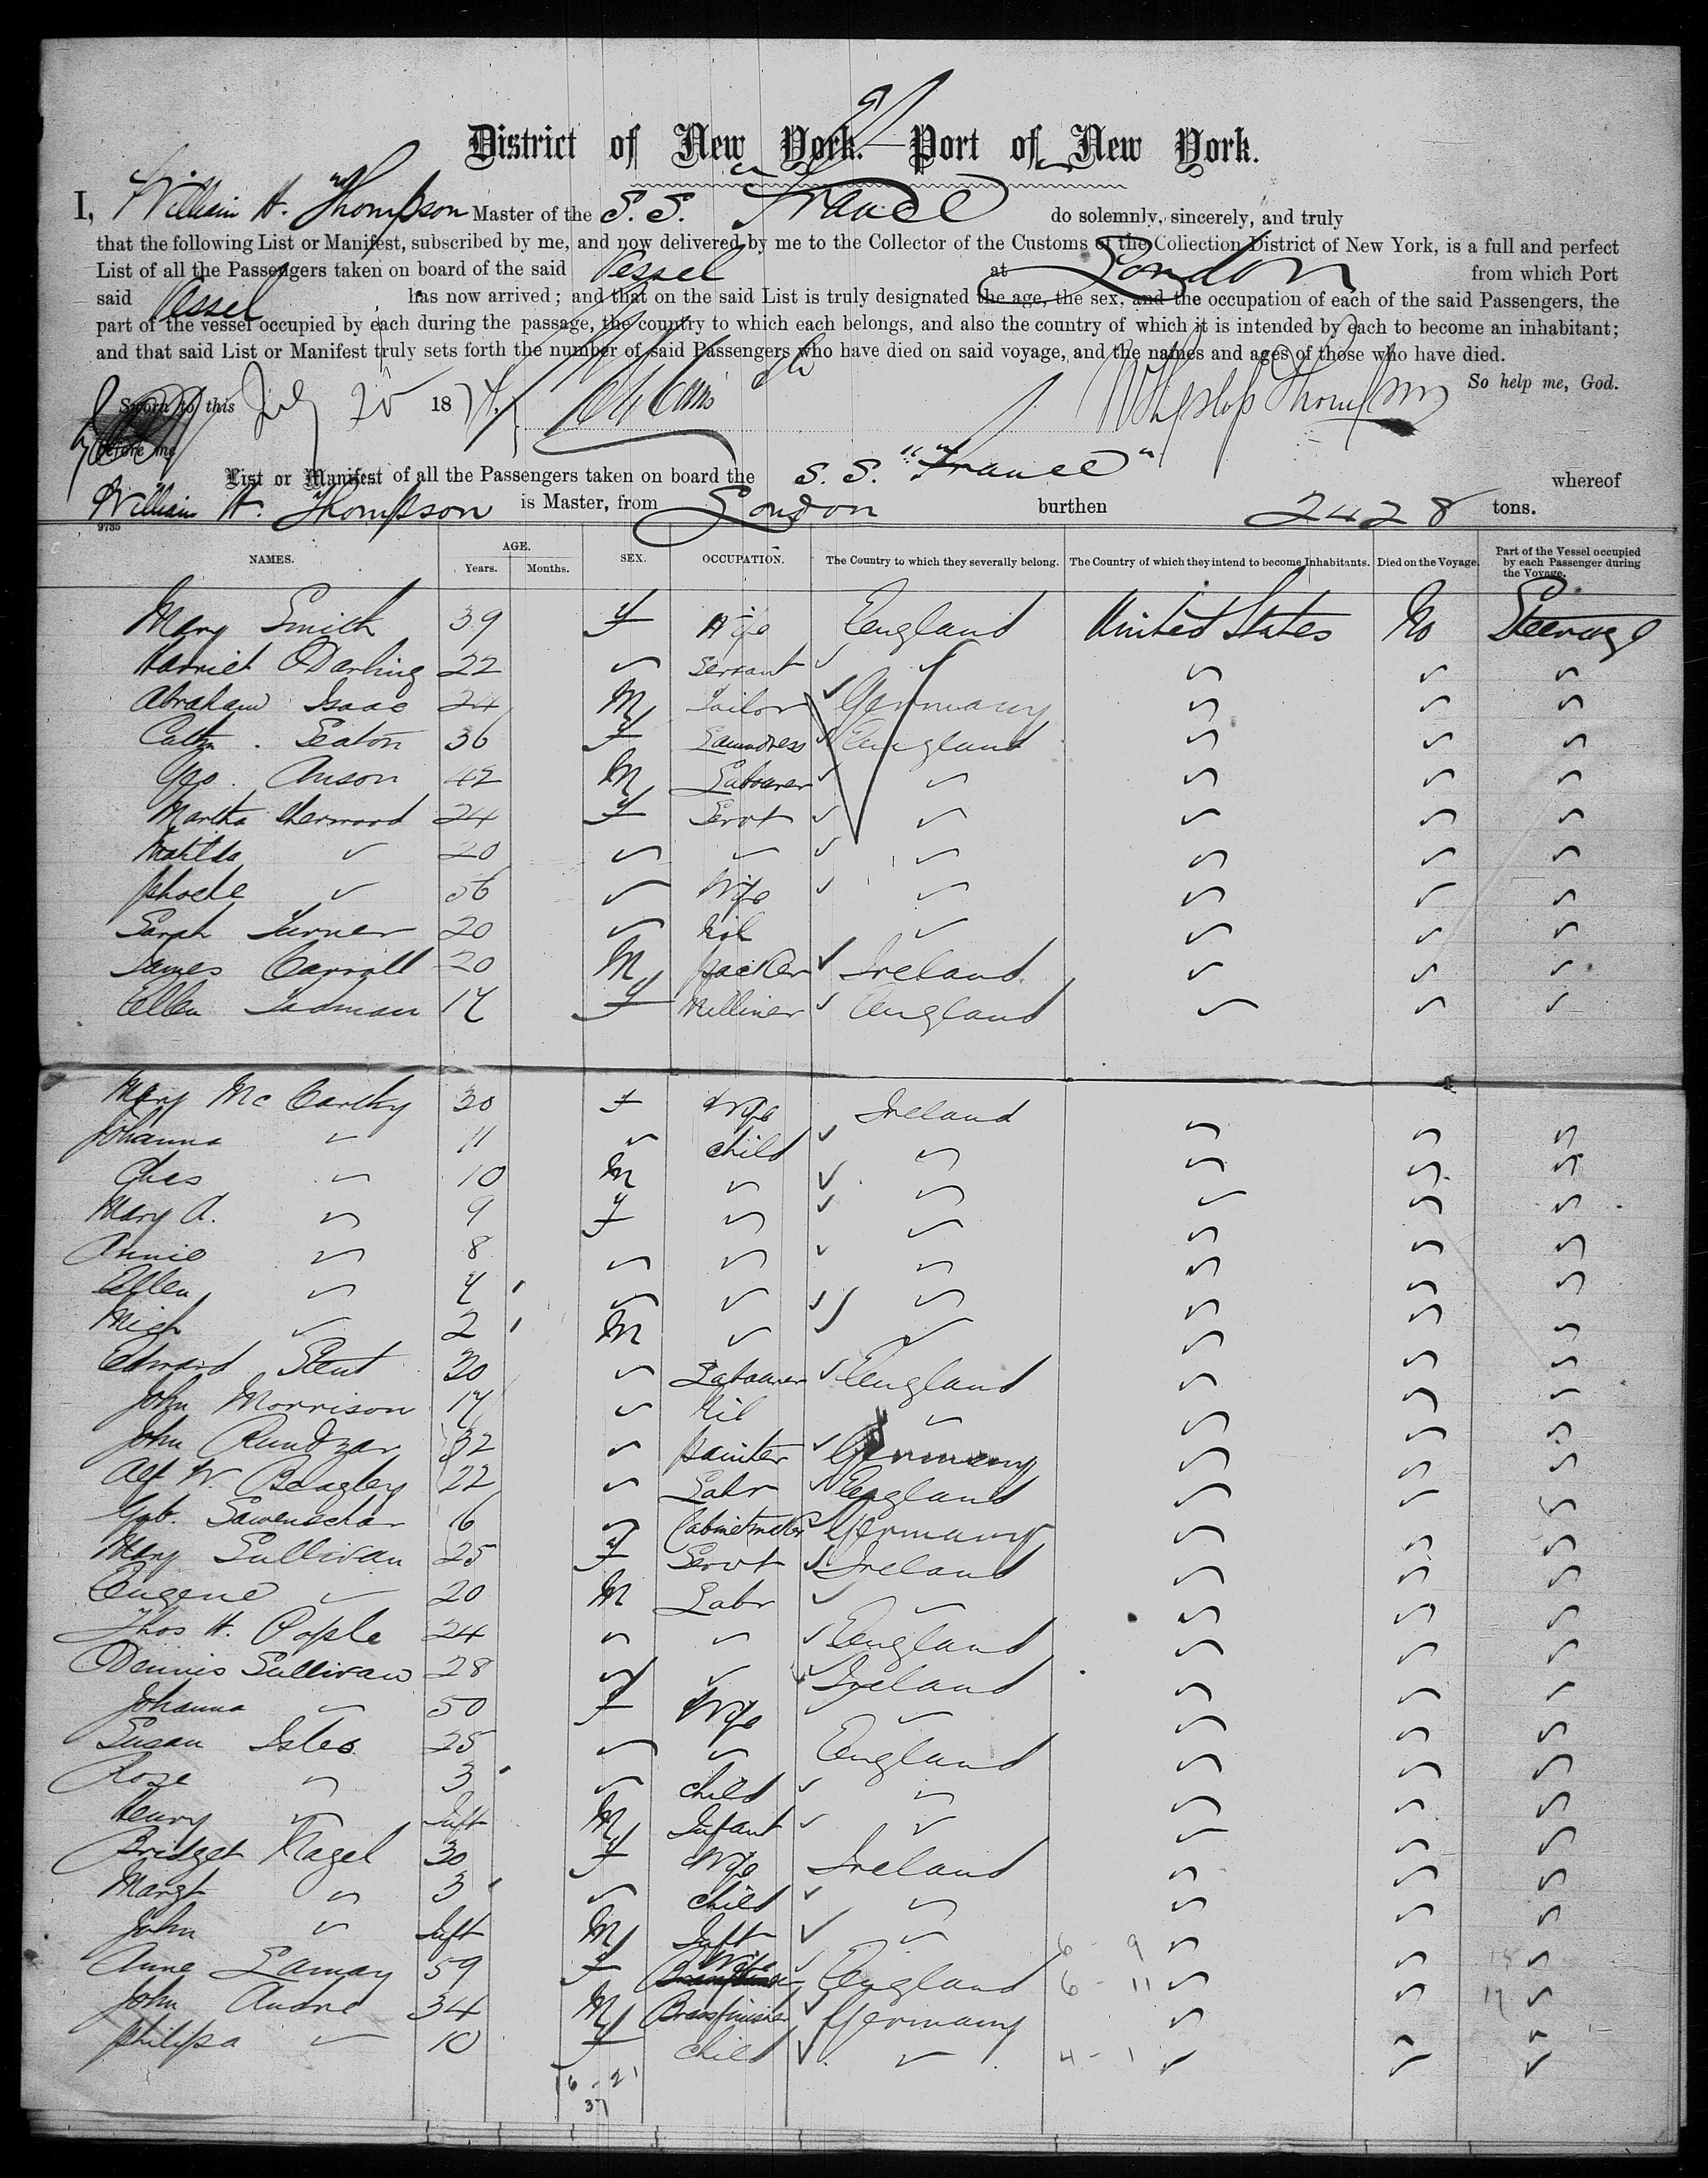 District of New York. Port of New York.
I, William H. Thompson Master of the S. S. "France" do solemnly, sincerely, and truly
that the following List or Manifest, subscribed by me, and now delivered by me to the Collector of the Customs of the Collection District of New York, is a full and perfect
List of all the Passengers taken on board of the said Vessel at London from which Port
said Vessel has now arrived; and that on the said List is truly designated the age, the sex, and the occupation of each of the said Passengers, the
part of the vessel occupied by each during the passage, the country to which each belongs, and also the country of which it is intended by each to become an inhabitant;
and that said List or Manifest truly sets forth the number of said Passengers who have died on said voyage, and the names and ages of those who have died.
So help me, God.
Sworn to this July 20 1874
before me
List or Manifest of all the Passengers taken on board the S. S. "France" whereof
William H. Thompson is Master, from London burthen 2428 tons.
9735
NAMES. AGE. Years. Months. SEX. OCCUPATION. The Country to which they severally belong. The Country of which they intend to become Inhabitants. Died on the Voyage. Part of the Vessel occupied by each Passenger during the Voyage.
Mary Smith 39 F Wife England United States No Steerage
Harriet Darling 22 " Servant " " " "
Abraham Isaac 24 M Tailor Germany " " "
Cathn. Seaton 36 F Laundress England " " "
Geo. Anson 42 M Labourer " " " "
Martha Sherwood 24 F Servt " " " "
Matilda " 20 " " " " " "
Phoebe " 56 " Wife " " " "
Sarah Turner 20 " Nil " " " "
James Carroll 20 M Packer Ireland " " "
Ellen Tadman 17 F Milliner England " " "
Mary McCarthy 30 F Wife Ireland " " "
Johanna " 11 " Child " " " "
Chas " 10 M " " " " "
Mary A. " 9 F " " " " "
Annie " 8 " " " " " "
Ellen " 7 " " " " " "
Mich " 2 M " " " " "
Edward Stent 30 " Labourer England " " "
John Morrison 17 " Nil " " " "
John 32 " Painter Germany " " "
Alf W. 22 " Labr England " " "
16 " Cabinetmaker Germany " " "
Mary Sullivan 25 F Servt Ireland " " "
Eugene " 20 M Labr " " " "
Thos H. Pople 24 " " England " " "
Dennis Sullivan 28 " " Ireland " " "
Johanna " 50 F Wife " " " "
Susan Isles 25 " " England " " "
Rose " 3 " Child " " " "
Henry " Inft M Infant " " " "
Bridget Nagel 30 F Wife Ireland " " "
Margt " 3 " Child " " " "
John " Inft M Inft " " " "
Anne 59 F Wife England " " "
John Andre 34 M Brassfinisher Germany " " "
Philipa " 10 F Child " " " "
6 - 9
6 - 11
4 - 1
16 - 21
37